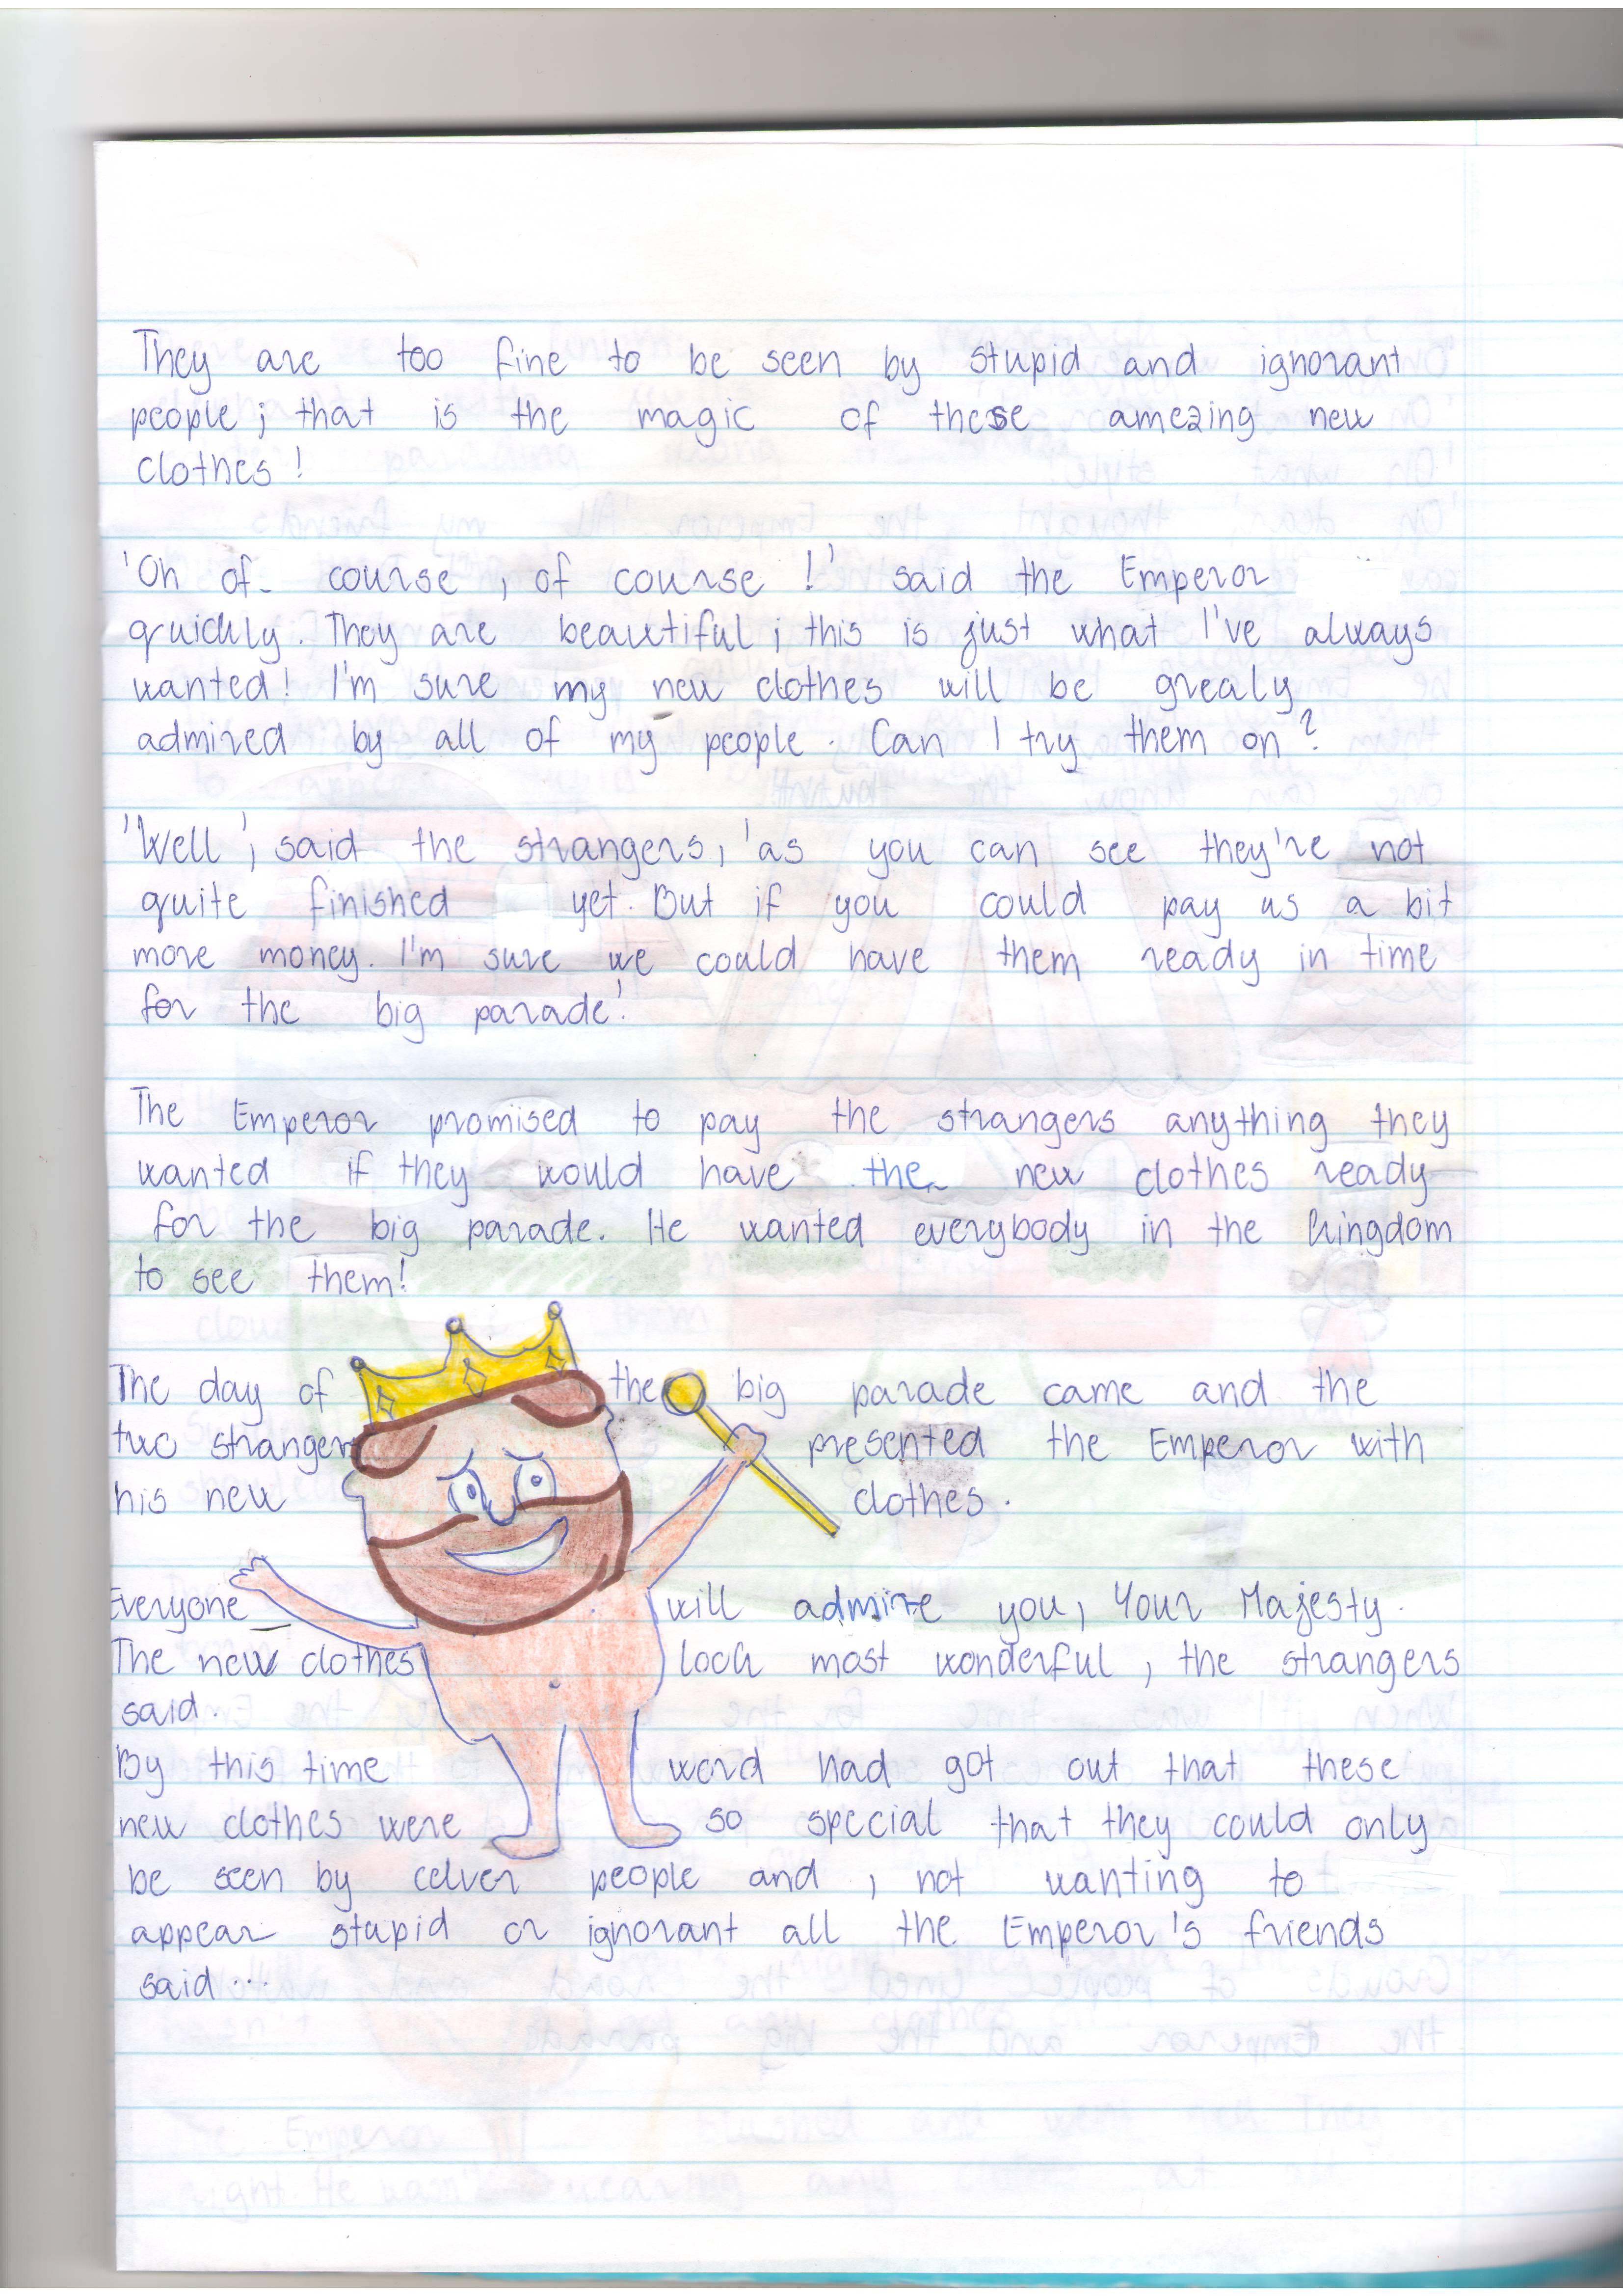 They are too fine to be seen by stupid and ignorant
people; that is the magic of these amezing new
clothes!
'Oh of course, of course!' said the Emperor
quickly. They are beautiful; this is just what I've always
wanted! I'm sure my new clothes will be grealy
admired by all of my people. Can I try them on?
'Well', said the strangers, 'as you can see they're not
quite finished yet. But if you could pay us a bit
more money. I'm sure we could have them ready in time
for the big parade.'
The Emperor promised to pay the strangers anything they
wanted if they would have the new clothes ready
for the big parade. He wanted everybody in the kingdom
to see them!
The day of the big parade came and the
two strangers presented the Emperor with
his new clothes.
Everyone will admire you, Your Majesty.
The new clothes look most wonderful, the strangers
said.
By this time word had got out that these
new clothes were so special that they could only
be seen by celver people and, not wanting to
appear stupid or ignorant all the Emperor's friends
said...